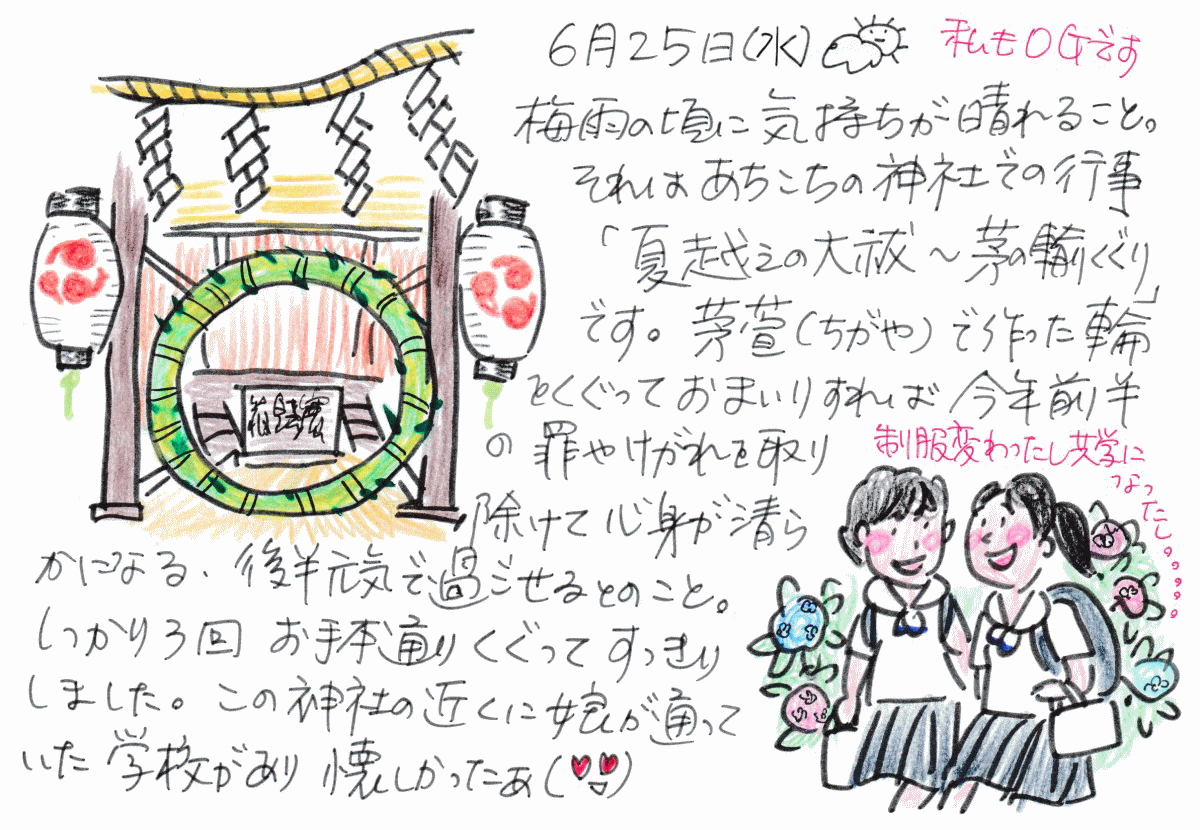 6月25日(水)
私もOGです
梅雨の頃に気持ちが晴れること。
それはあちこちの神社での行事
「夏越えの大祓〜茅の輪くぐり」
です。茅萱(ちがや)で作った輪
をくぐっておまいりすれば今年前半
の罪やけがれを取り
除けて心身が清ら
かになる、後半元気で過ごせるとのこと。
しっかり3回 お手本通りくぐってすっきり
しました。この神社の近くに娘が通って
いた学校があり懐しかったあ
制服変わったし共学に
なったし。。。。。。